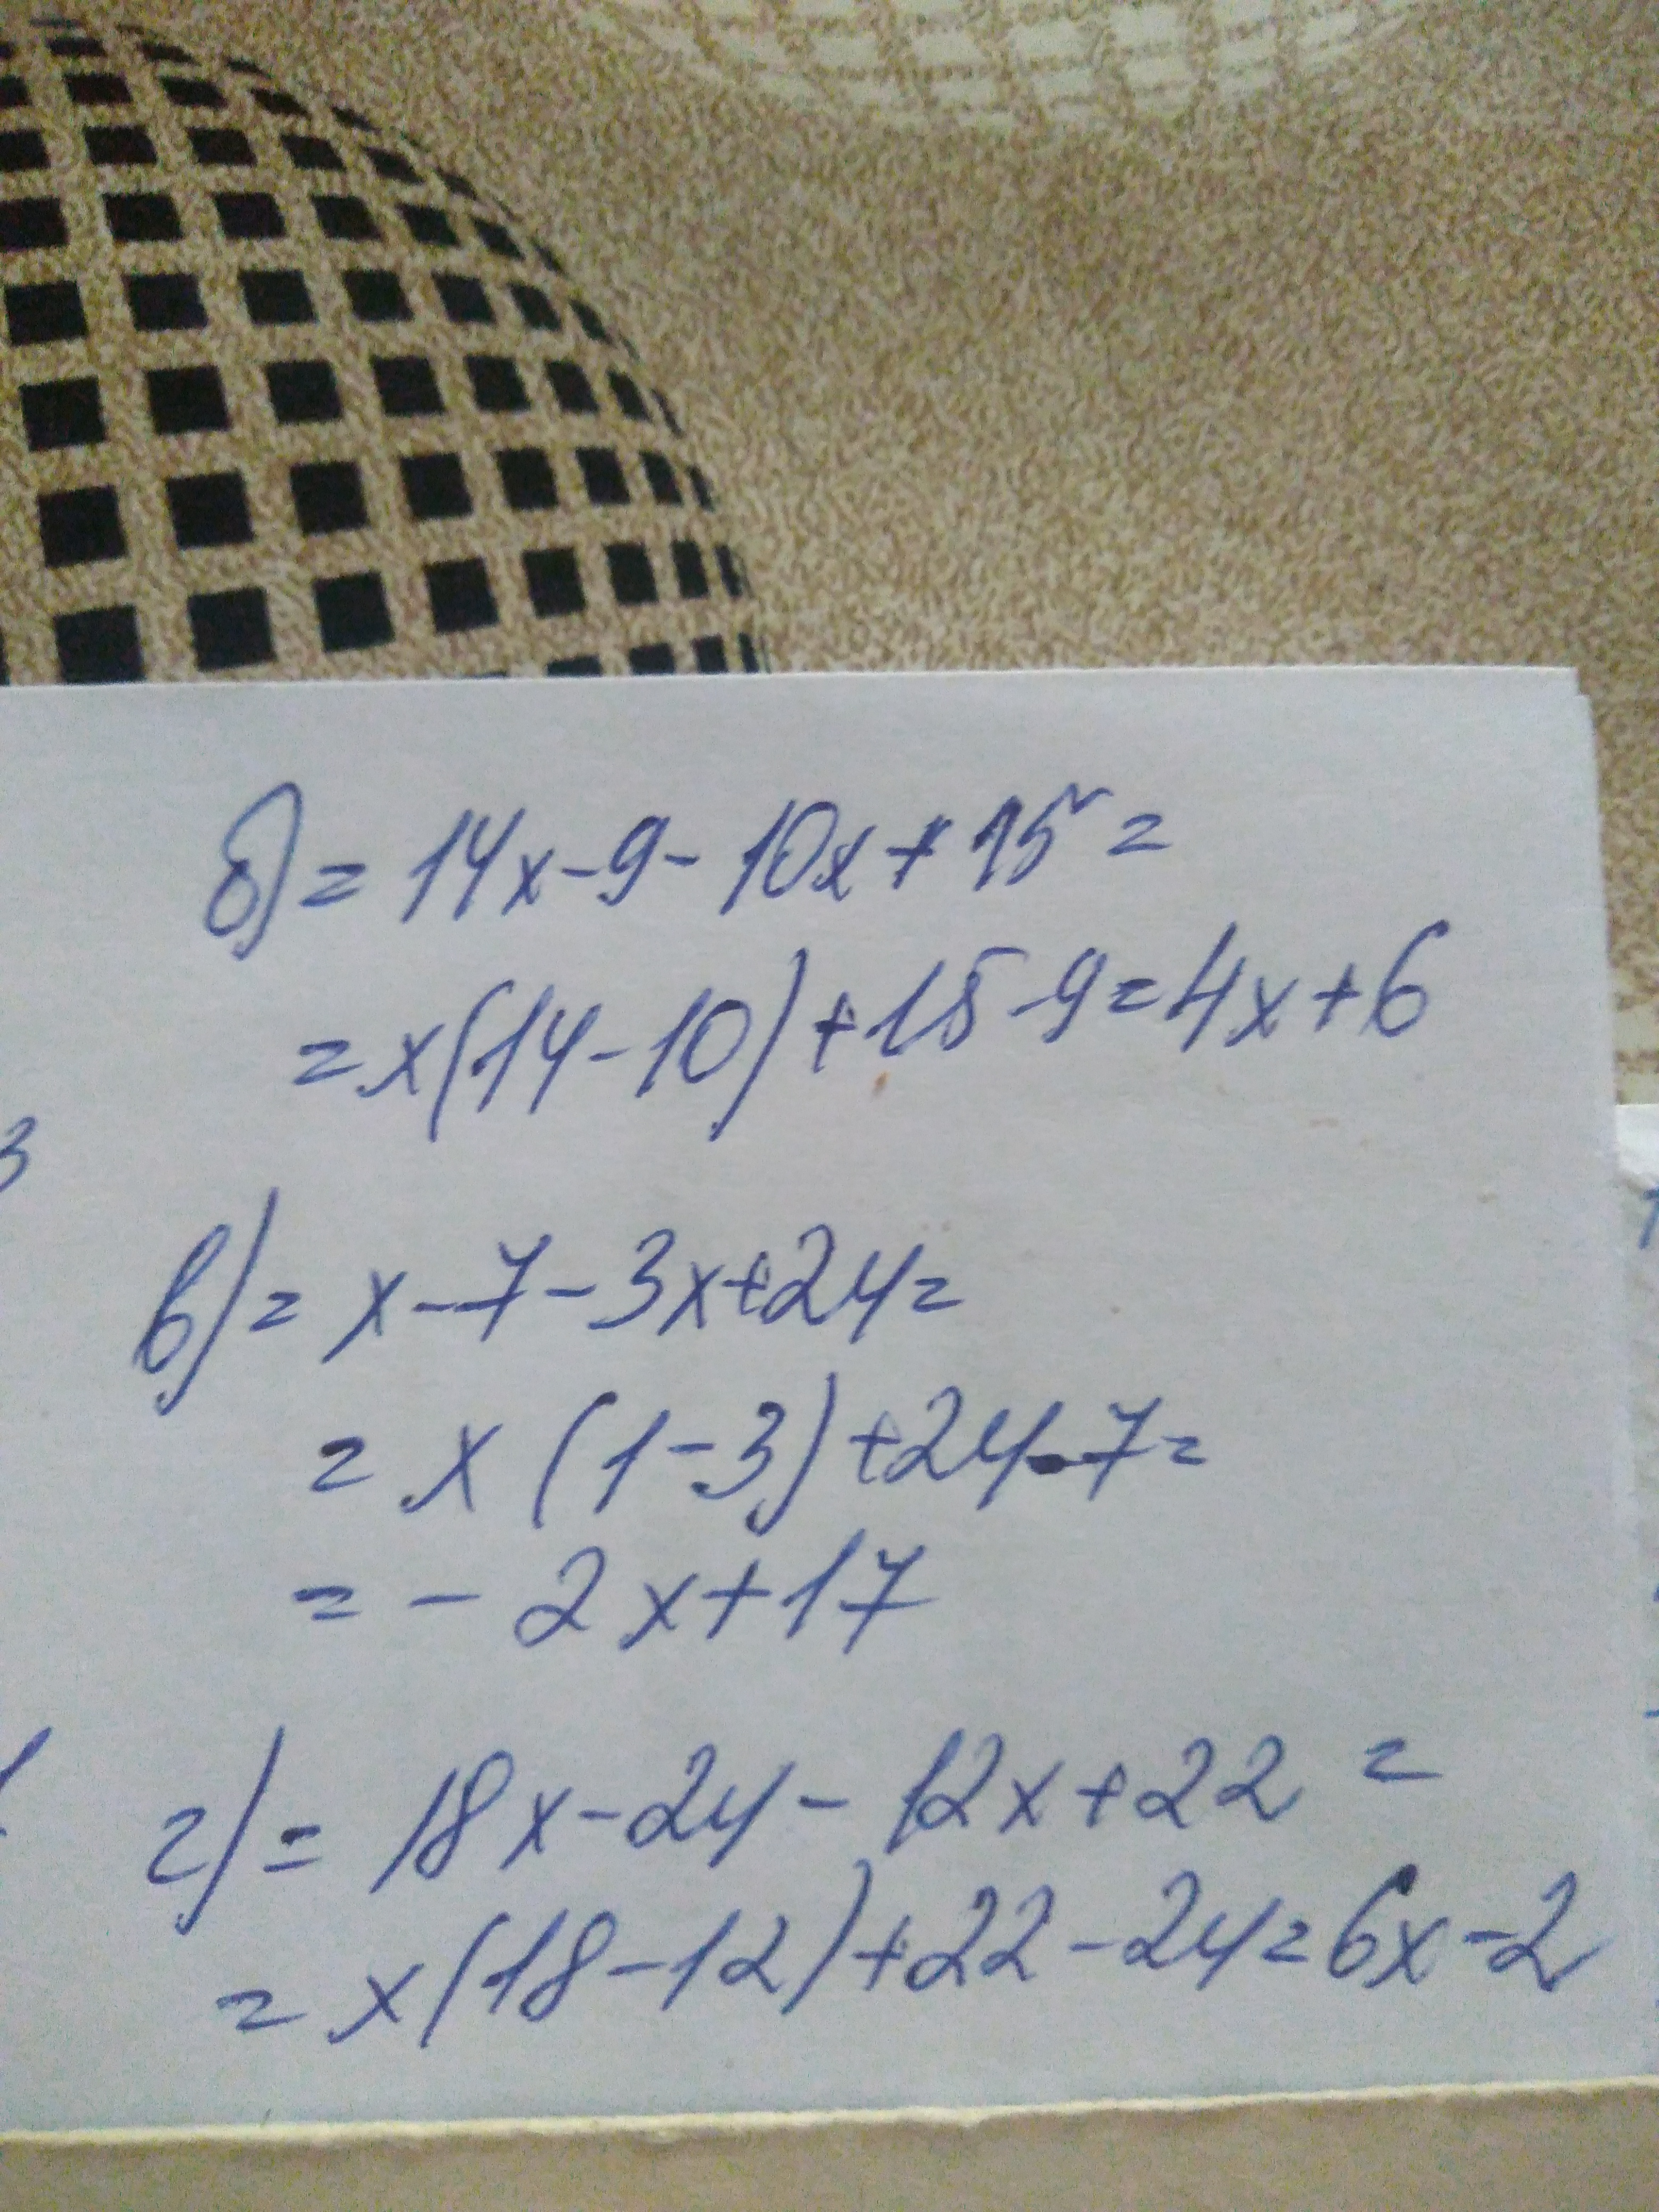 б) = 14x - 9 - 10x + 15 =
= x(14 - 10) + 15 - 9 = 4x + 6
3
в) = x - 7 - 3x + 24 =
= x (1 - 3) + 24 - 7 =
= - 2x + 17
г) = 18x - 24 - 12x + 22 =
= x(18 - 12) + 22 - 24 = 6x - 2